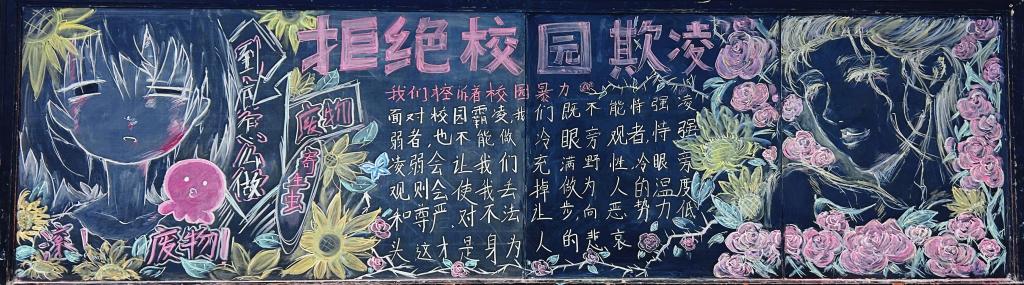 拒绝校园欺凌
我们控诉着校园暴力
面对校园霸凌,我们既不能恃强凌
弱者,也不能做冷眼旁观者,恃强
凌弱会让我们充满野性,冷眼旁
观则会使我去掉做为人的温度
和尊严,对不法止步,向恶势力低
头这才是身为人的悲哀
废物
寄生虫
滚!
废物